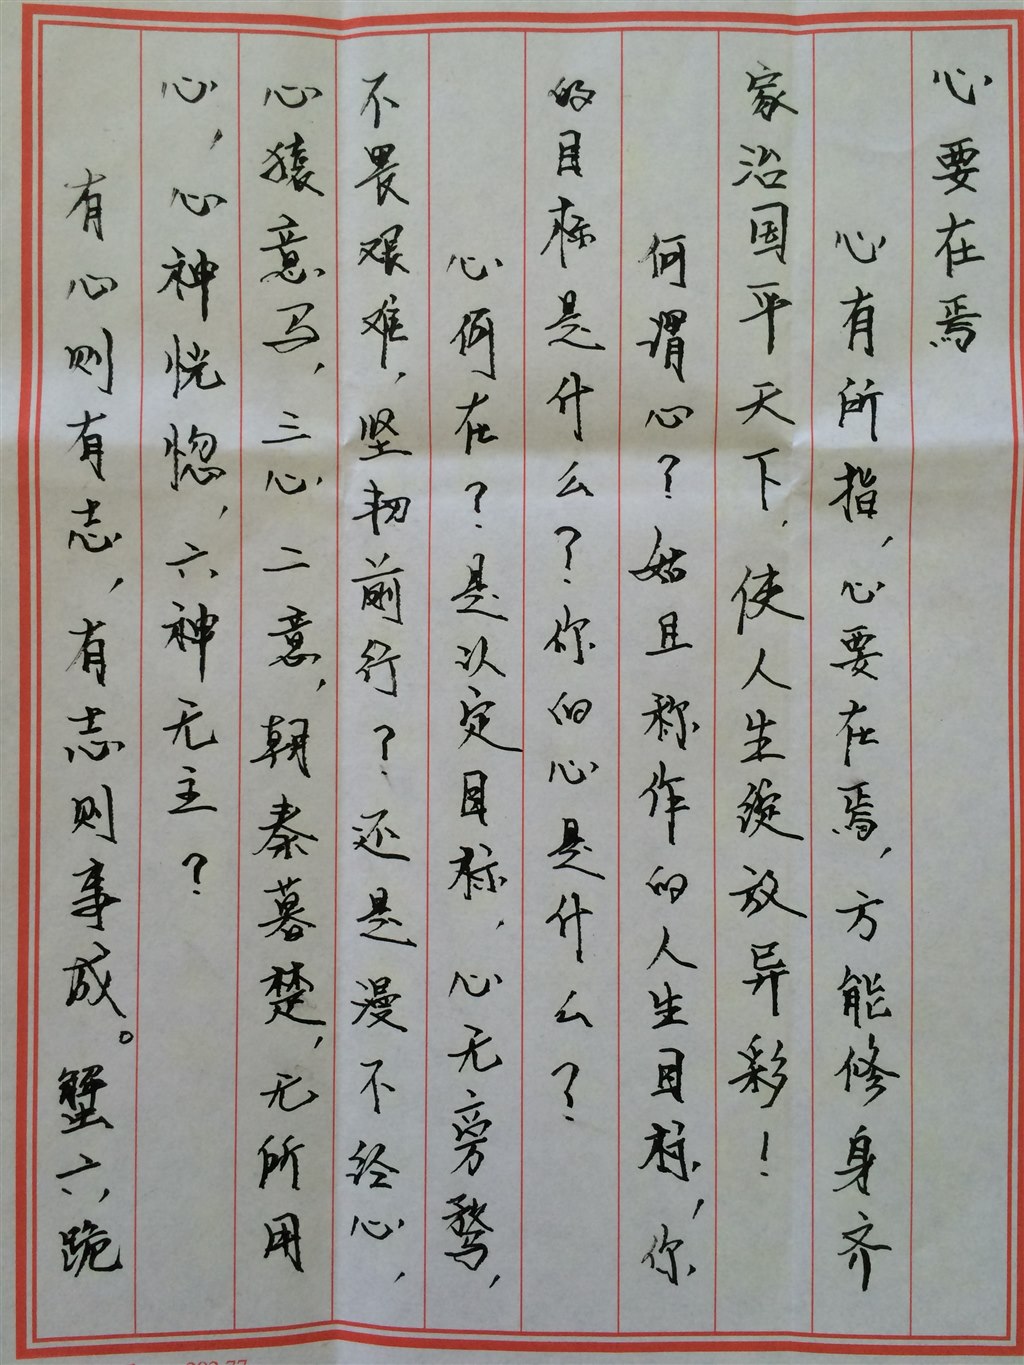 心要在焉
心有所指，心要在焉，方能修身齐
家治国平天下，使人生绽放异彩！
何谓心？姑且称作的人生目标，你
的目标是什么？你的心是什么？
心何在？是以定目标，心无旁骛，
不畏艰难，坚韧前行？还是漫不经心，
心猿意马，三心二意，朝秦暮楚，无所用
心，心神恍惚，六神无主？
有心则有志，有志则事成。蟹六跪